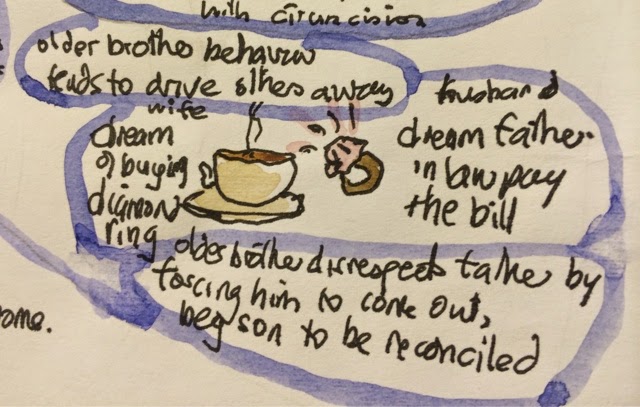 with circumcision
older brother behavior
tends to drive others away
wife
dream
of buying
diamond
ring
husband
dream father
in law pay
the bill
older brother disrespects father by
forcing him to come out,
beg son to be reconciled
ome.